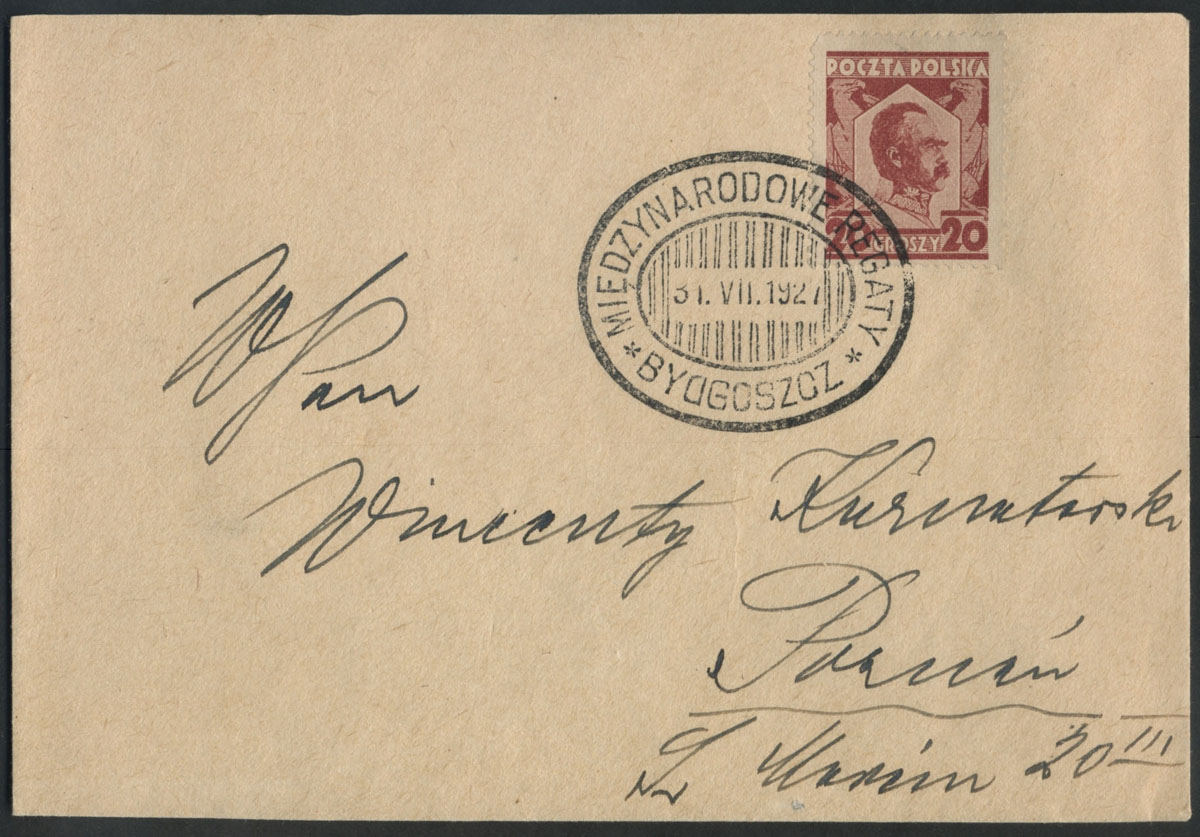 POCZTA POLSKA
20 GROSZY 20
MIĘDZYNARODOWE REGATY
31.VII.1927
* BYDGOSZCZ *
WPan
Wincenty Kurnatowski
Poznań
Św Marcin 20 III